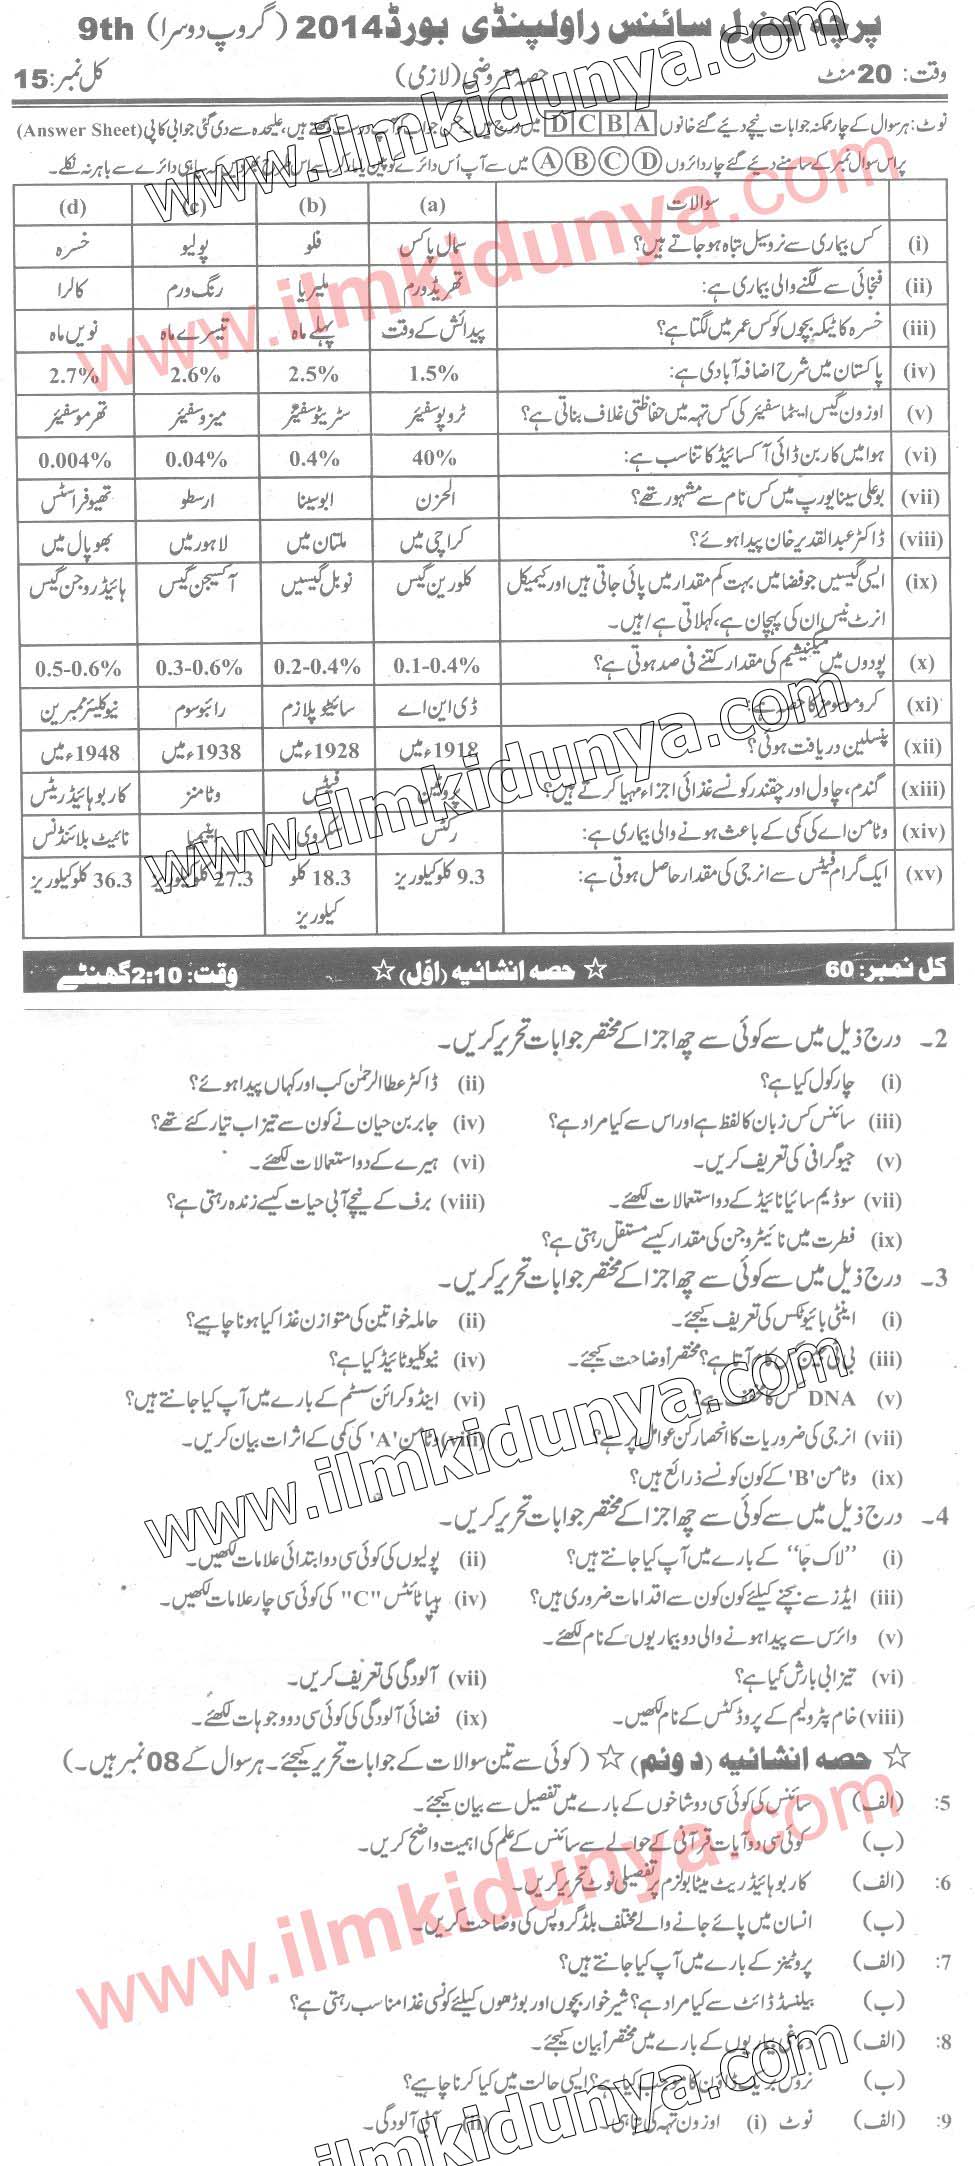 پرچہ جنرل سائنس راولپنڈی بورڈ 2014 (گروپ دوسرا) 9th
وقت: 20 منٹ حصہ معروضی (لازمی) کل نمبر: 15
نوٹ: ہر سوال کے چار ممکنہ جوابات نیچے دیئے گئے خانوں A B C D میں درج ہیں۔ علیحدہ سے دی گئی جوابی کاپی (Answer Sheet)
پر اس سوال نمبر کے سامنے دیئے گئے چار دائروں A B C D میں سے آپ اُس دائرے کو سیاہی دائرے سے باہر نہ نکلے۔
سوالات (a) (b) (c) (d)
(i) کس بیماری سے نرو سیل تباہ ہو جاتے ہیں؟ سمال پاکس فلو پولیو خسرہ
(ii) فنجائی سے لگنے والی بیماری ہے: تھریڈ ورم ملیریا رنگ ورم کالرا
(iii) خسرہ کا ٹیکہ بچوں کو کس عمر میں لگتا ہے؟ پیدائش کے وقت پہلے ماہ تیسرے ماہ نویں ماہ
(iv) پاکستان میں شرح اضافہ آبادی ہے: 1.5% 2.5% 2.6% 2.7%
(v) اوزون گیس ایٹماسفیئر کی کس تہہ میں حفاظتی غلاف بناتی ہے؟ ٹروپوسفیئر سٹریٹوسفیئر میزوسفیئر تھرموسفیئر
(vi) ہوا میں کاربن ڈائی آکسائیڈ کا تناسب ہے: 40% 0.4% 0.04% 0.004%
(vii) بوعلی سینا یورپ میں کس نام سے مشہور تھے؟ الحزن ابوسینا ارسطو تھیوفراسٹس
(viii) ڈاکٹر عبدالقدیر خان پیدا ہوئے؟ کراچی میں ملتان میں لاہور میں بھوپال میں
(ix) ایسی گیسیں جو فضا میں بہت کم مقدار میں پائی جاتی ہیں اور کیمیکل کلورین گیس نوبل گیسیں آکسیجن گیس ہائیڈروجن گیس
انرٹ نیس ان کی پہچان ہے، کہلاتی ہے/ہیں۔
(x) پودوں میں میگنیشیم کی مقدار کتنے فی صد ہوتی ہے؟ 0.1-0.4% 0.2-0.4% 0.3-0.6% 0.5-0.6%
(xi) کروموسومز کا حصہ ہے: ڈی این اے سائیٹوپلازم رائبوسوم نیوکلیئر ممبرین
(xii) پنسلین دریافت ہوئی؟ 1918ء میں 1928ء میں 1938ء میں 1948ء میں
(xiii) گندم، چاول اور چقندر کونسے غذائی اجزاء مہیا کرتے ہیں؟ پروٹین فیٹس وٹامنز کاربوہائیڈریٹس
(xiv) وٹامن اے کی کمی کے باعث ہونے والی بیماری ہے: رکٹس سکروی اینیمیا نائیٹ بلائنڈنس
(xv) ایک گرام فیٹس سے انرجی کی مقدار حاصل ہوتی ہے: 9.3 کلوکیلوریز 18.3 کلو کیلوریز 27.3 کلوکیلوریز 36.3 کلوکیلوریز
کل نمبر: 60 ☆ حصہ انشائیہ (اوّل) ☆ وقت: 2:10 گھنٹے
2۔ درج ذیل میں سے کوئی سے چھ اجزا کے مختصر جوابات تحریر کریں۔
(i) چارکول کیا ہے؟ (ii) ڈاکٹر عطاالرحمٰن کب اور کہاں پیدا ہوئے؟
(iii) سائنس کس زبان کا لفظ ہے اور اس سے کیا مراد ہے؟ (iv) جابر بن حیان نے کون سے تیزاب تیار کئے تھے؟
(v) جیوگرافی کی تعریف کریں۔ (vi) ہیرے کے دو استعمالات لکھئے۔
(vii) سوڈیم سائیانائیڈ کے دو استعمالات لکھئے۔ (viii) برف کے نیچے آبی حیات کیسے زندہ رہتی ہے؟
(ix) فطرت میں نائیٹروجن کی مقدار کیسے مستقل رہتی ہے؟
3۔ درج ذیل میں سے کوئی سے چھ اجزا کے مختصر جوابات تحریر کریں۔
(i) اینٹی بائیوٹکس کی تعریف کیجئے۔ (ii) حاملہ خواتین کی متوازن غذا کیا ہونا چاہیے؟
(iii) آتا ہے؟ مختصراً وضاحت کیجئے۔ (iv) نیوکلیوٹائیڈ کیا ہے؟
(v) DNA کس کا مخفف ہے؟ (vi) اینڈوکرائن سسٹم کے بارے میں آپ کیا جانتے ہیں؟
(vii) انرجی کی ضروریات کا انحصار کن عوامل پر ہے؟ (viii) وٹامن 'A' کی کمی کے اثرات بیان کریں۔
(ix) وٹامن 'B' کے کون کونسے ذرائع ہیں؟
4۔ درج ذیل میں سے کوئی سے چھ اجزا کے مختصر جوابات تحریر کریں۔
(i) ’’لاک جا‘‘ کے بارے میں آپ کیا جانتے ہیں؟ (ii) پولیوں کی کوئی سی دو ابتدائی علامات لکھیں۔
(iii) ایڈز سے بچنے کیلئے کون کون سے اقدامات ضروری ہیں؟ (iv) ہیپاٹائٹس "C" کی کوئی سی چار علامات لکھیں۔
(v) وائرس سے پیدا ہونے والی دو بیماریوں کے نام لکھئے۔
(vi) تیزابی بارش کیا ہے؟ (vii) آلودگی کی تعریف کریں۔
(viii) خام پٹرولیم کے پروڈکٹس کے نام لکھیں۔ (ix) فضائی آلودگی کی کوئی سی دو وجوہات لکھئے۔
☆ حصہ انشائیہ (دوئم) ☆ (کوئی سے تین سوالات کے جوابات تحریر کیجئے۔ ہر سوال کے 08 نمبر ہیں۔)
5: (الف) سائنس کی کوئی سی دو شاخوں کے بارے میں تفصیل سے بیان کیجئے۔
(ب) کوئی سی دو آیات قرآنی کے حوالے سے سائنس کے علم کی اہمیت واضح کریں۔
6: (الف) کاربوہائیڈریٹ میٹابولزم پر تفصیلی نوٹ تحریر کریں۔
(ب) انسان میں پائے جانے والے مختلف بلڈ گروپس کی وضاحت کریں۔
7: (الف) پروٹینز کے بارے میں آپ کیا جانتے ہیں؟
(ب) بیلنسڈ ڈائٹ سے کیا مراد ہے؟ شیرخوار بچوں اور بوڑھوں کیلئے کونسی غذا مناسب رہتی ہے؟
8: (الف) دماغی بیماریوں کے بارے میں مختصراً بیان کیجئے۔
(ب) نروس بریک ڈاؤن کا سبب کیا ہے؟ ایسی حالت میں کیا کرنا چاہیے؟
9: (الف) نوٹ (i) اوزون تہہ کی تباہی۔ (ii) آبی آلودگی۔
www.ilmkidunya.com
www.ilmkidunya.com
www.ilmkidunya.com
www.ilmkidunya.com
www.ilmkidunya.com
ilmkidunya.com